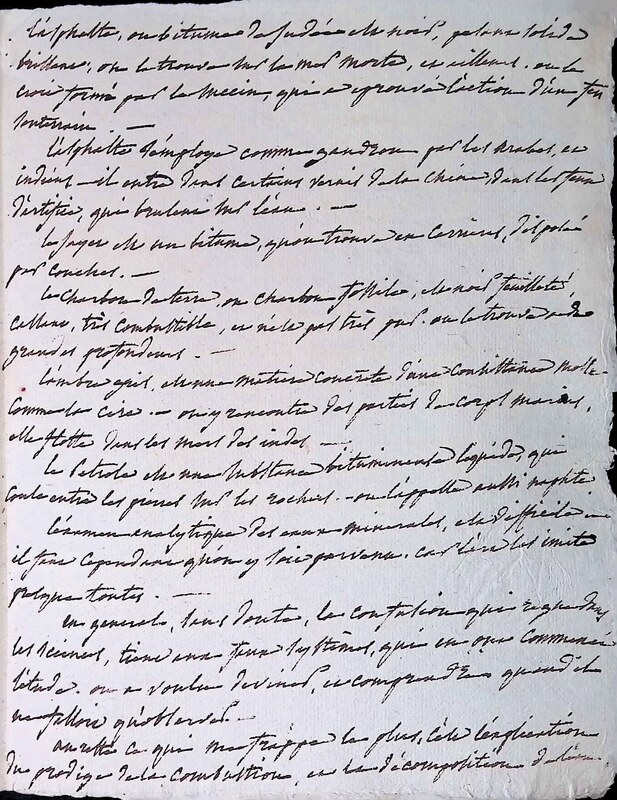 l'asphalte, ou bitume de judée est noir, pesant solide
brillant, on le trouve sur la mer morte, et ailleurs. on le
croit formé par le succin, qui a éprouvé l'action d'un feu
souterrain. —
l'asphalte s'employe comme goudron par les arabes, et
indiens — il entre dans certains vernis de la chine, dans les feux
d'artifice, qui brulent sur l'eau. —
le jayet est un bitume, qu'on trouve en carrières, disposé
par couches. —
le charbon de terre, ou charbon fossile, est noir feuilleté,
cassant, très combustible, et n'est pas très pur. on le trouve a de
grandes profondeurs. —
l'ambre gris, est une matière concrète d'une consistance molle
comme la cire. — on y rencontre des parties de corps marins,
elle flotte dans les mers des indes —
le Petrole est une substance bitumineuse liquide, qui
coule entre les pierres sur les rochers. — on l'appelle aussi naphte
l'éxamen analytique des eaux minerales, est difficile —
il faut cependant qu'on y soit parvenu, car l'on les imite
presque toutes. —
en general, sans doute, la confusion qui regne dans
les sciences, tient aux faux systêmes, qui en ont commencé
l'étude. on a voulu deviner, et comprendre quand il
ne falloit qu'observer. —
au reste ce qui me frappe le plus, c'est l'explication
du prodige de la combustion, et la décomposition de l'eau.